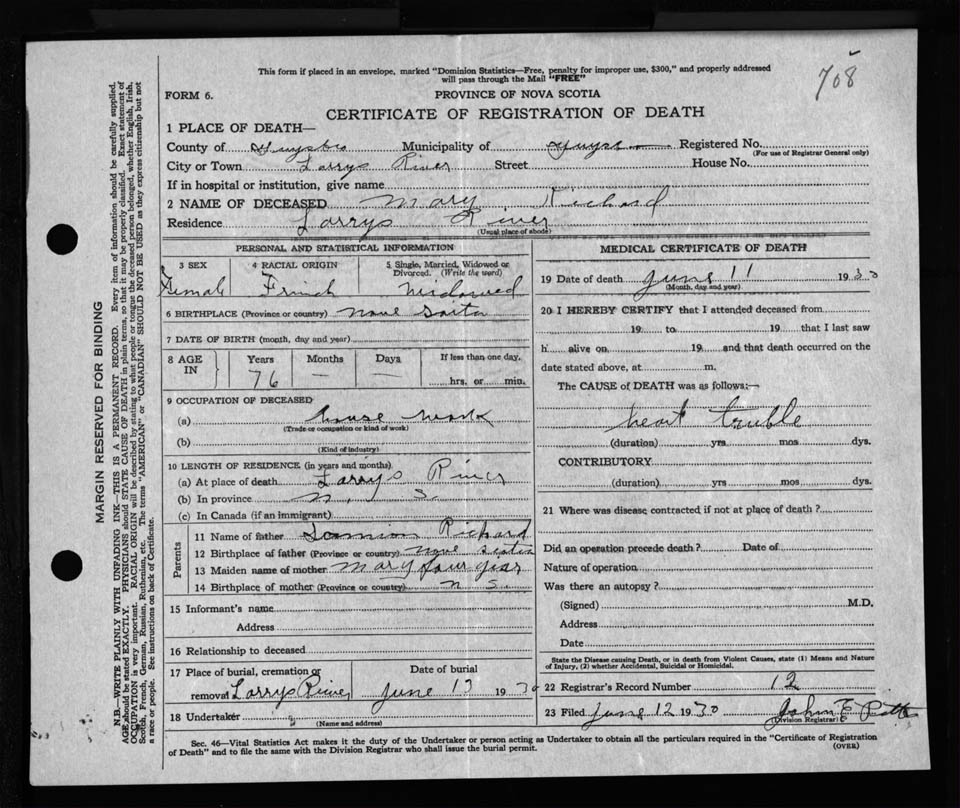 708
This form if placed in an envelope, marked "Dominion Statistics—Free, penalty for improper use, $300," and properly addressed
will pass through the Mail "FREE"
FORM 6.
PROVINCE OF NOVA SCOTIA
CERTIFICATE OF REGISTRATION OF DEATH
1 PLACE OF DEATH—
County of Municipality of Registered No.
(For use of Registrar General only)
City or Town Larrys River Street House No.
If in hospital or institution, give name
2 NAME OF DECEASED Mary Richard
Residence Larrys River
(Usual place of abode)
PERSONAL AND STATISTICAL INFORMATION
3 SEX 4 RACIAL ORIGIN 5 Single, Married, Widowed or
Divorced. (Write the word)
Female Frinch Widowed
6 BIRTHPLACE (Province or country) nove
7 DATE OF BIRTH (month, day and year)
8 AGE IN Years Months Days If less than one day,
76 — — hrs. or min.
9 OCCUPATION OF DECEASED
(a) house work
(Trade or occupation or kind of work)
(b)
(Kind of industry)
10 LENGTH OF RESIDENCE (in years and months)
(a) At place of death Larrys River
(b) In province N. S.
(c) In Canada (if an immigrant)
Parents
11 Name of father Richard
12 Birthplace of father (Province or country) nove
13 Maiden name of mother Mary
14 Birthplace of mother (Province or country) N S
15 Informant's name
Address
16 Relationship to deceased
17 Place of burial, cremation or Date of burial
removal Larrys River June 13 1930
18 Undertaker
(Name and address)
MEDICAL CERTIFICATE OF DEATH
19 Date of death June 11 1930
(Month, day and year)
20 I HEREBY CERTIFY that I attended deceased from
19 to 19 that I last saw
h alive on 19 and that death occurred on the
date stated above, at m.
The CAUSE of DEATH was as follows:—
heart truble
(duration) yrs mos dys.
CONTRIBUTORY
(duration) yrs mos dys.
21 Where was disease contracted if not at place of death ?
Did an operation precede death ? Date of
Nature of operation
Was there an autopsy ?
(Signed) M.D.
Address
Date
State the Disease causing Death, or in death from Violent Causes, state (1) Means and Nature
of Injury, (2) whether Accidental, Suicidal or Homicidal.
22 Registrar's Record Number 12
23 Filed June 12 1930 John E
(Division Registrar)
Sec. 46—Vital Statistics Act makes it the duty of the Undertaker or person acting as Undertaker to obtain all the particulars required in the "Certificate of Registration
of Death" and to file the same with the Division Registrar who shall issue the burial permit.
(OVER)
MARGIN RESERVED FOR BINDING
N.B.—WRITE PLAINLY WITH UNFADING INK—THIS IS A PERMANENT RECORD. Every item of information should be carefully supplied.
AGE should be stated EXACTLY. PHYSICIANS should STATE CAUSE OF DEATH in plain terms, so that it may be properly classified. Exact statement of
OCCUPATION is very important. RACIAL ORIGIN will be described by stating to what people or tongue the deceased person belonged, whether English, Irish,
Scotch, French, German, Russian, Ruthenian, etc. The terms "AMERICAN" or "CANADIAN" SHOULD NOT BE USED as they express citizenship but not
a race or people. See instructions on back of Certificate.